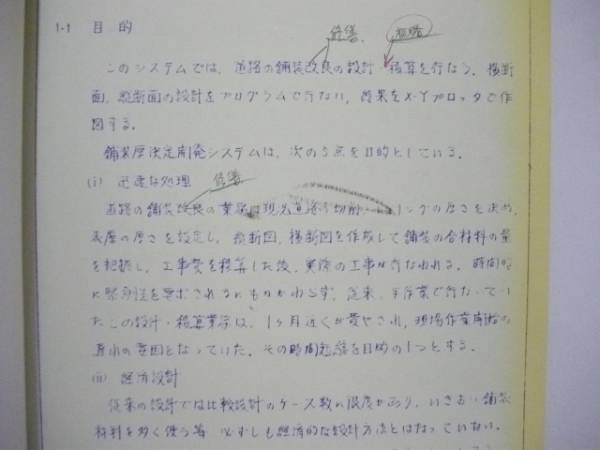 1-1 目的
修繕
このシステムでは、道路の舗装改良の設計 積算を行なう。横断
面、縦断面の設計をプログラムで行ない、結果をX-Yプロッタで作
図する。
舗装厚決定開発システムは、次の5点を目的としている。
(i) 迅速な処理
修繕
道路の舗装改良の業務は現況道路の切削 の厚さを決め、
表層の厚さを設定し、縦断図、横断図を作成して舗装の合材料の量
を把握し、工事費を積算した後、実際の工事が行なわれる。時間的
に緊急性を要求されるにもかかわらず、従来、手作業で行なってい
たこの設計・積算業務は、1ヶ月近くが費やされ、現場作業開始の
遅れの要因となっていた。その時間短縮を目的の1つとする。
(ii) 経済設計
従来の設計では比較設計のケース数に限度があり、いきおい舗装
材料を多く使う等 必ずしも経済的な設計方法とはなっていない。